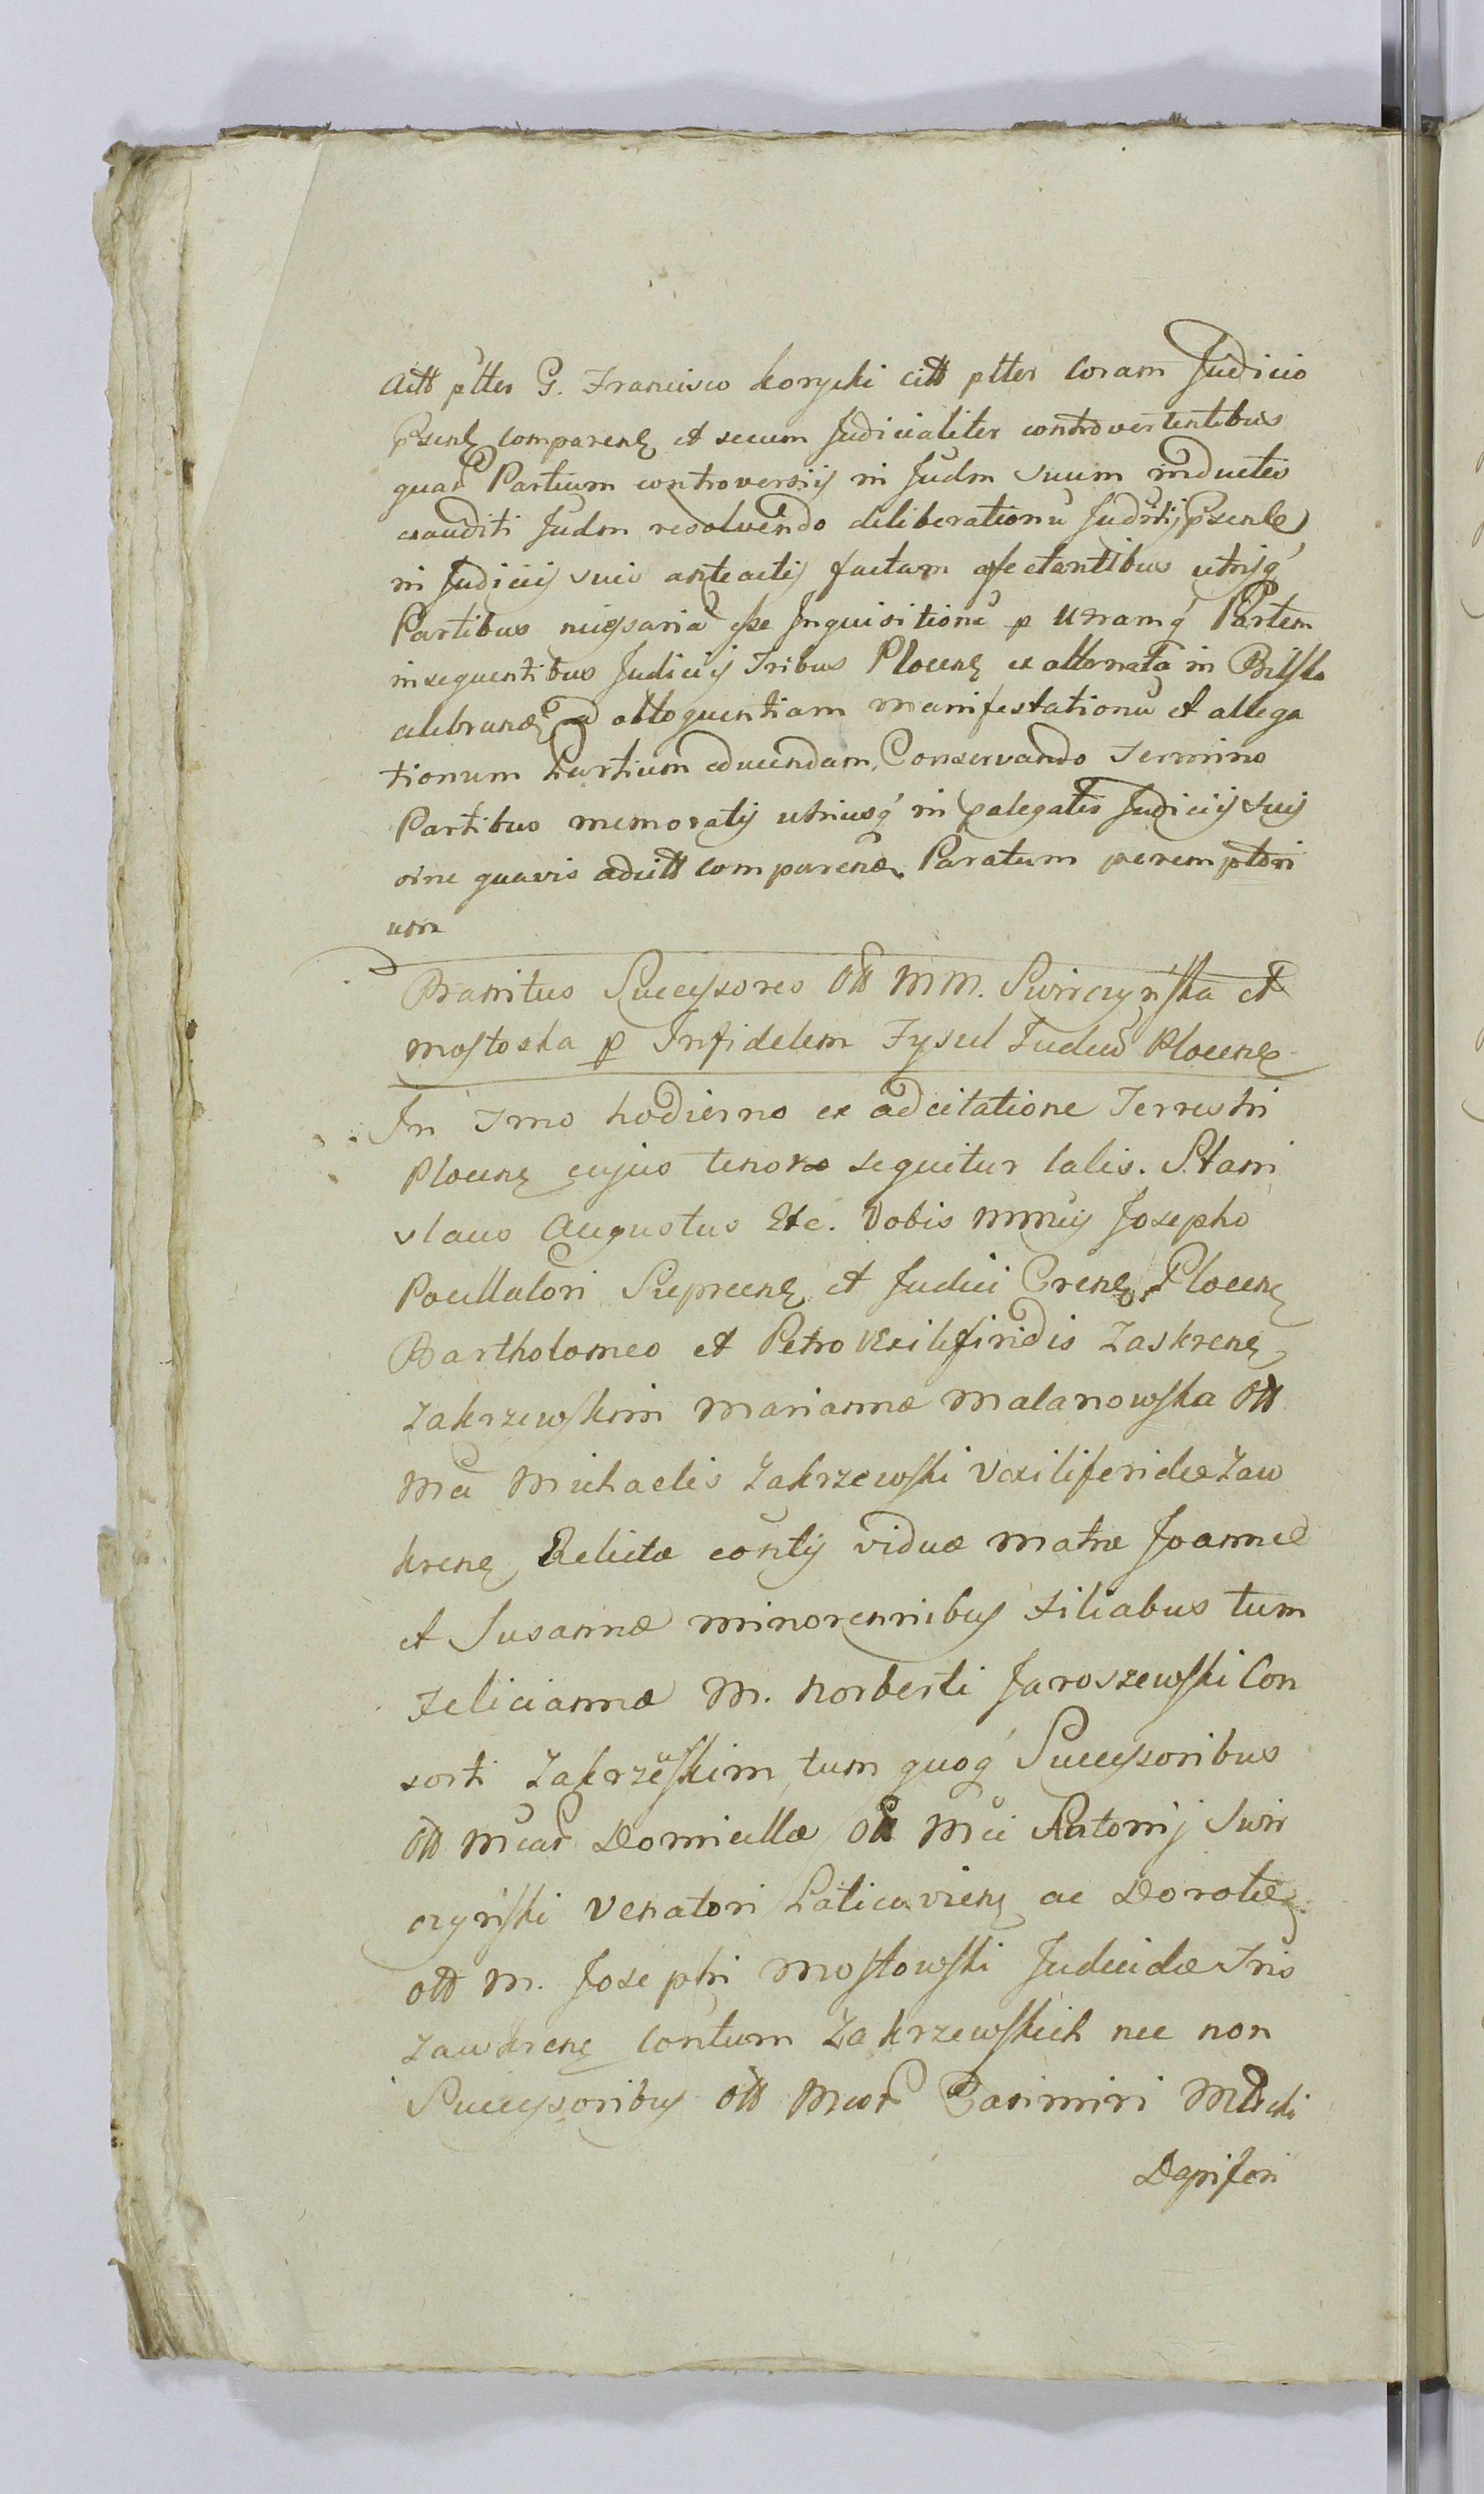 Actt ptter G. Francisco Korycki citt ptter Coram Judicio
Psenę comparenę et secum Judicialiter controvertentibus
quar Partium controversijs in Judm suum inductis
exauditi Judm resolvendo deliberationū Judicij Psenle
in Judicijs suis anteactis factam afectantibus utrisq́
Partibus necessaria esse Inquisitionē p Utramq́ Partem
in sequentibus Judicijs Tribus Plocenę ex alternata in Bielsko
celebranę ad alloquentiam manifestationū et allega
tionum Partium educendam, Conservando Termino
Partibus memoratis utriusq́ in Palegatis Judicijs suis
sine quavis adcitt comparenę. Paratum peremptori
um
Branitus Successores Ott MM. Swirczyńska et
Mostoska p Infidelem Fysul Judeū Plocenę
In Tmo hodierno ex adcitatione Terrestri
Plocenę cujus tenor sequitur talis. Stani
slaus Augustus Etc. Vobis Mmcis Josepho
Pocillatori Sieprcenę et Judici Crenę Plocenę
Bartholomeo et Petro Vexiliferidis Zaskrenę
Zakrzewskim Marianna Malanowska Ott
Mci Michaelis Zakrzewski Vexiliferidæ Zaw
krenę Relictæ contij viduæ Matræ Joannæ
et Susannæ minorennibus Filiabus tum
Feliciannæ M. Norberti Jaroszewski Con
sorti Zakrzeskim tum quoq́ Successoribus
Ott Mcar Domicellæ Ott Mci Antonij Swir
czyński Venatori Laticzoviensę ac Dorotæ
ott M. Josephi Mostowski Judicidæ Tris
Zawkrenę Contum Zakrzewskich nec non
Successoribus Ott Mcor Casimiri
Dapiferi